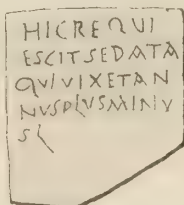 HICREQUI
ESCITSEDATA
QVIVIXETAN
NVSPLVSMINV
S L